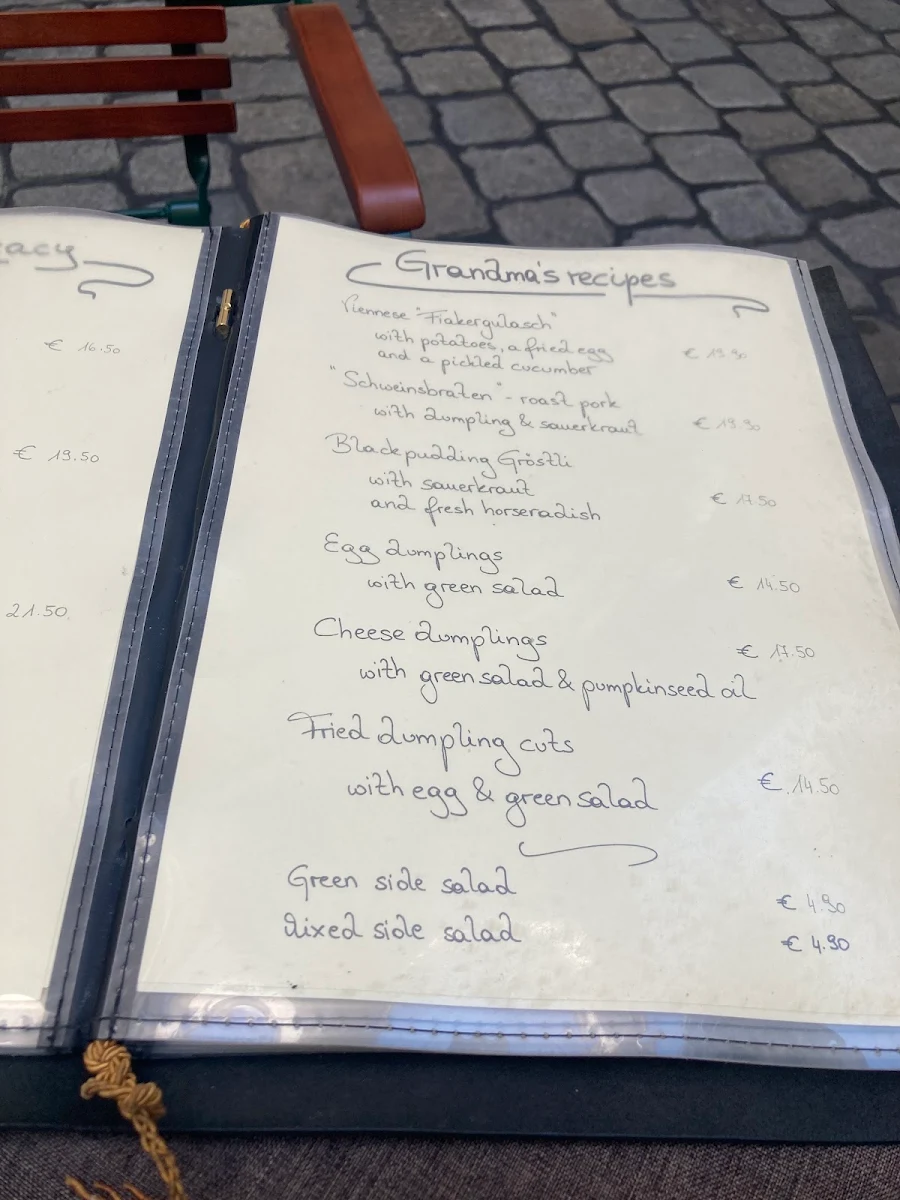 acy
€ 16.50
€ 19.50
21.50
Grandma's recipes
Viennese "Fiakergulasch"
with potatoes, a fried egg € 19.90
and a pickled cucumber
"Schweinsbraten" - roast pork
with dumpling & sauerkraut € 19.90
Blackpudding Gröstli
with sauerkraut
and fresh horseradish € 17.50
Egg dumplings
with green salad € 14.50
Cheese dumplings € 17.50
with green salad & pumpkinseed oil
Fried dumpling cuts
with egg & green salad € 14.50
Green side salad € 4.90
Mixed side salad € 4.90